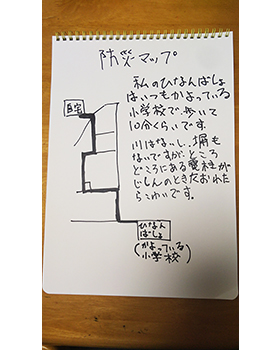 防災マップ
私のひなんばしょ
はいつもかよっている
小学校で、歩いて
10分くらいです。
川はないし、塀も
ないですが、ところ
どころにある電柱が
じしんのときたおれた
らこわいです。
自宅
ひなん
ばしょ
(かよっている
小学校)